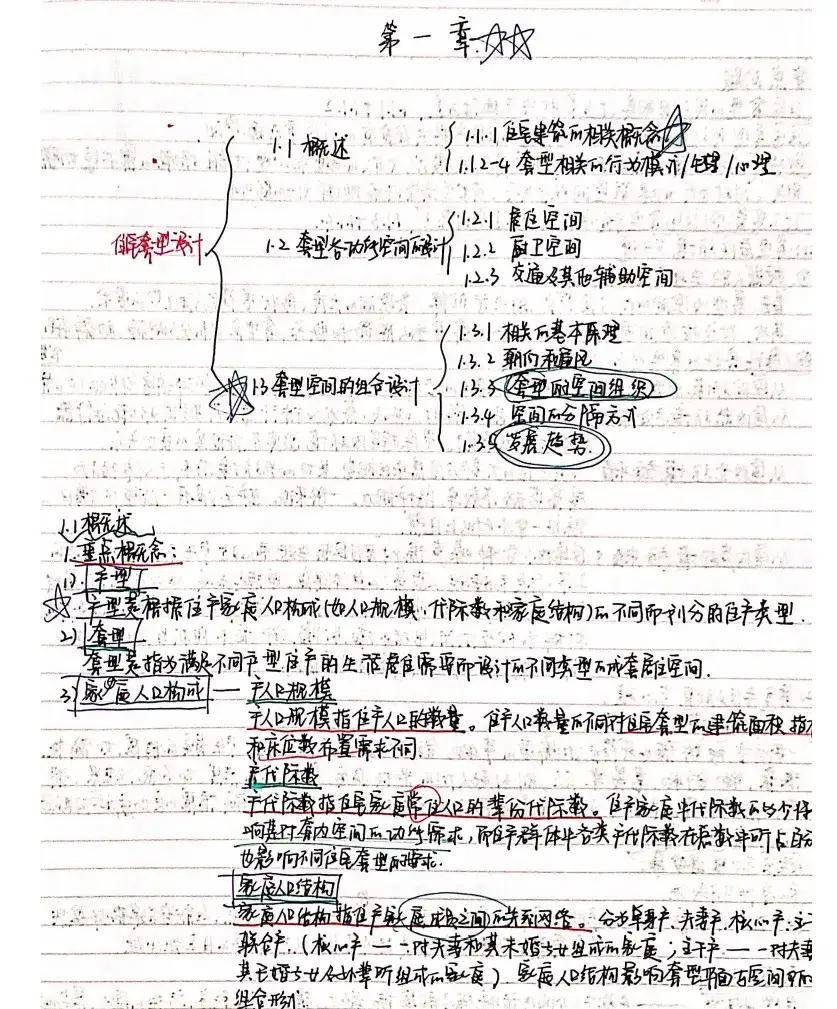 第一章
1.1 概述
1.1.1 住宅建筑的相关概念
1.1.2-4 套型相关的行为模式/生理/心理
住宅套型设计
1.2 套型各功能空间的设计
1.2.1 居住空间
1.2.2 厨卫空间
1.2.3 交通及其他辅助空间
1.3 套型空间的组合设计
1.3.1 相关的基本原理
1.3.2 朝向和通风
1.3.3 套型的空间组织
1.3.4 空间的分隔方式
1.3.5 发展趋势
1.1 概述
1. 重点概念:
1) 户型
户型是根据住户家庭人口构成(如人口规模、代际数和家庭结构)的不同而划分的住户类型.
2) 套型
套型是指为满足不同户型住户的生活居住需要而设计的不同类型的成套居住空间.
3) 家庭人口构成 —— 户人口规模
户人口规模指住户人口的数量。住户人口数量的不同对住宅套型的建筑面积指
和床位数布置需求不同.
户代际数
户代际数指住宅家庭常住人口的辈份代际数。住户家庭中代际数的多少
响其对套内空间的功能需求,而住户群体中各类户代际数在总数中所占
也影响不同住宅套型的要求.
家庭人口结构
家庭人口结构指住户家庭成员之间的关系网络。分为单身户、夫妻户、核心户、主
联合户.(核心户——一对夫妻和其未婚子女组成的家庭;主干户——一对夫妻
其已婚子女及孙辈所组成的家庭)家庭人口结构影响套型平面与空间
组合形式.